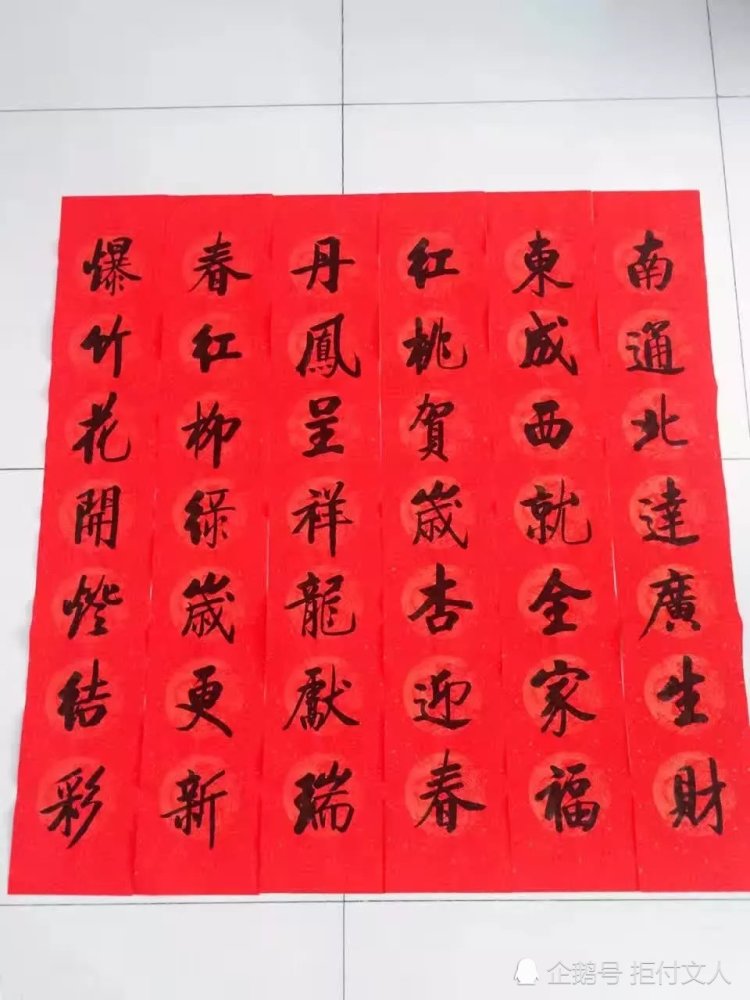 南通北達廣生財
東成西就全家福
紅桃賀歲杏迎春
丹鳳呈祥龍獻瑞
春紅柳綠歲更新
爆竹花開燈結彩
企鹅号 拒付文人